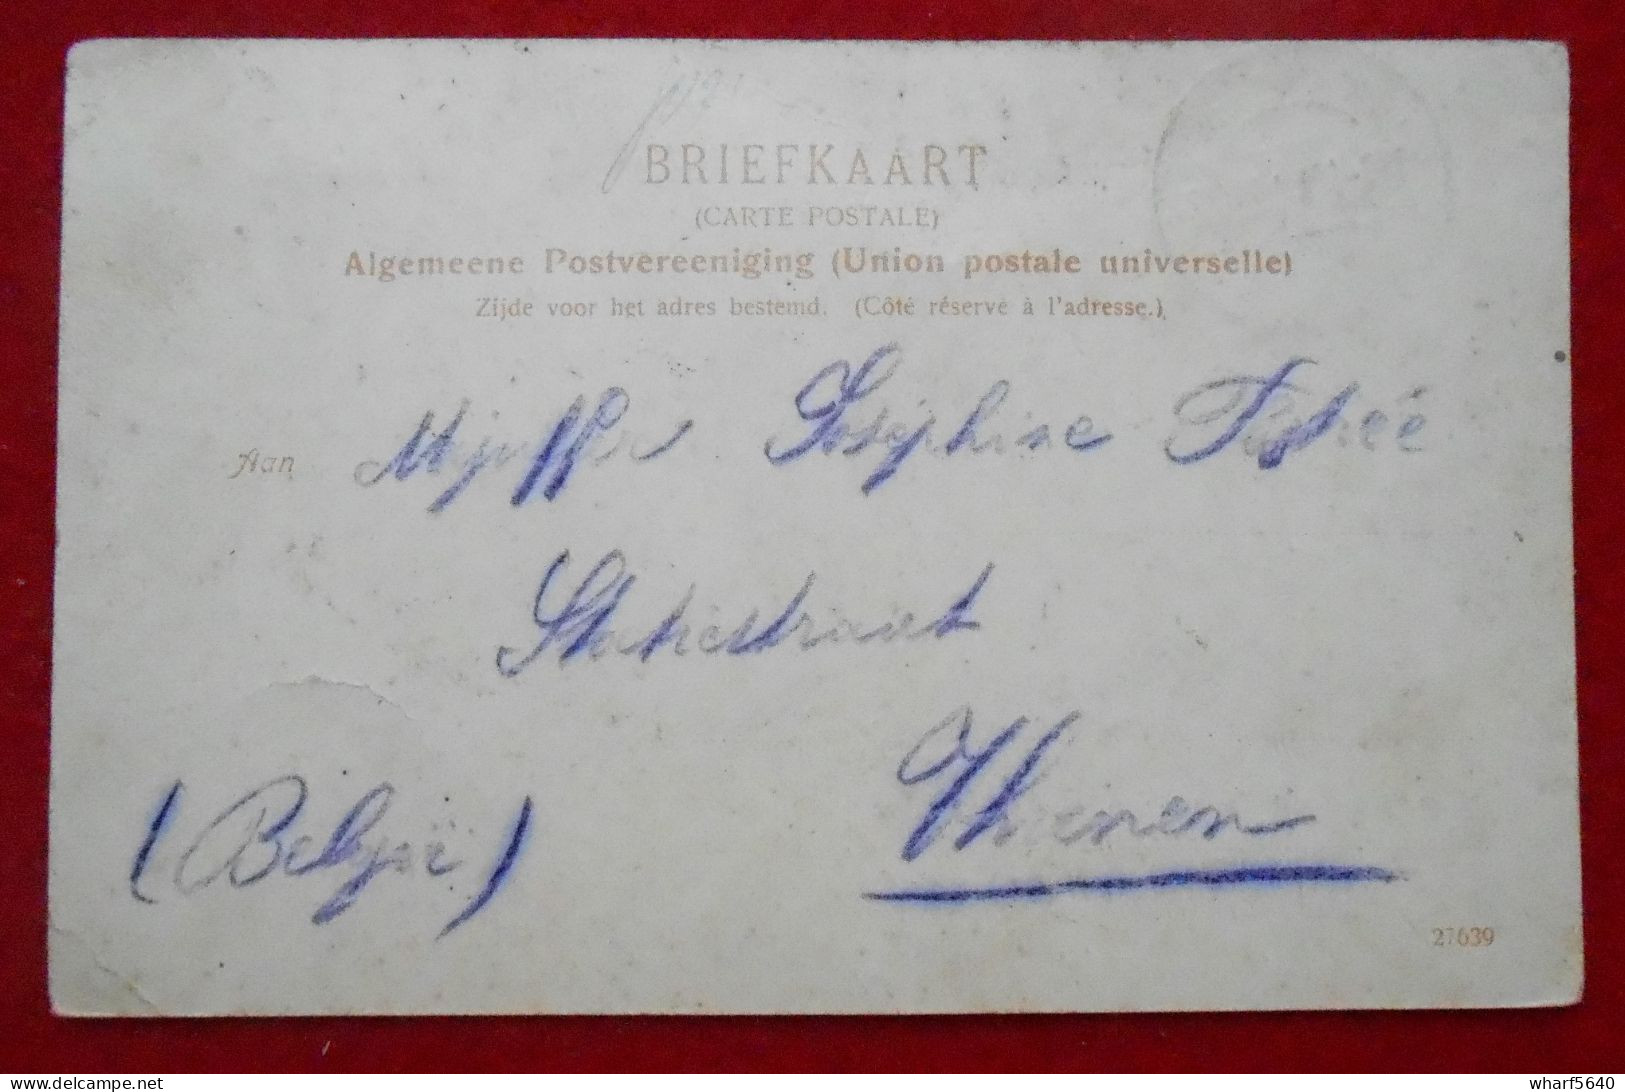 BRIEFKAART
(CARTE POSTALE)
Algemeene Postvereeniging (Union postale universelle)
Zijde voor het adres bestemd. (Côté réservé à l'adresse.)
Aan Mejuffer Joséphine
Statiestraat
Thienen
(België)
27639
wharf5640